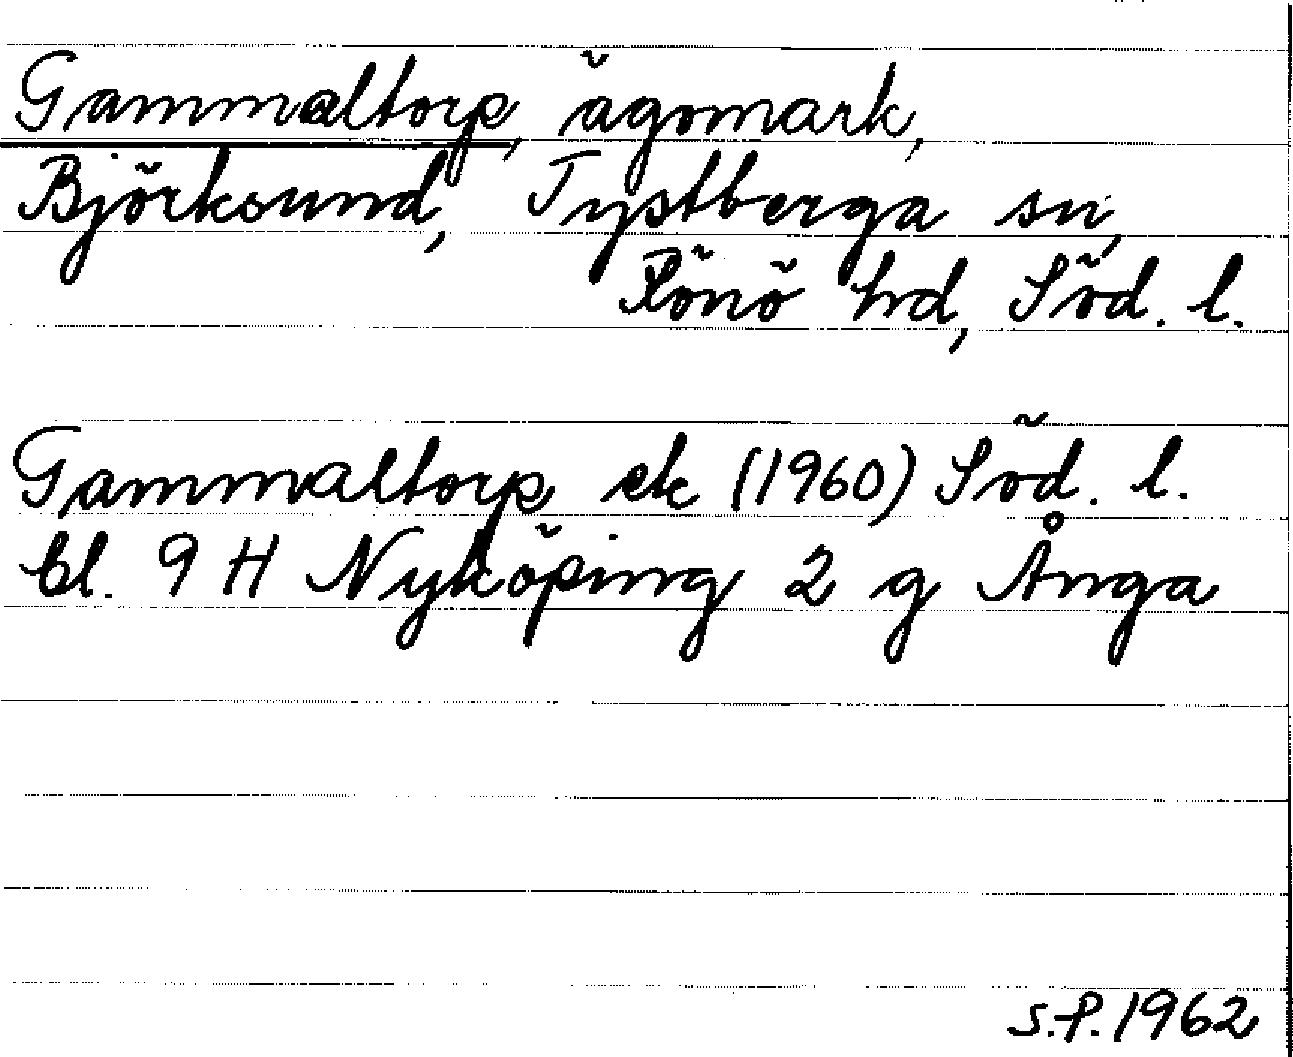 Gammaltorp, ägomark,
Björksund, Tystberga sn,
Rönö hd, Söd. l.
Gammaltorp ek (1960) Söd. l.
bl. 9 H Nyköping 2 g Ånga
S.P. 1962